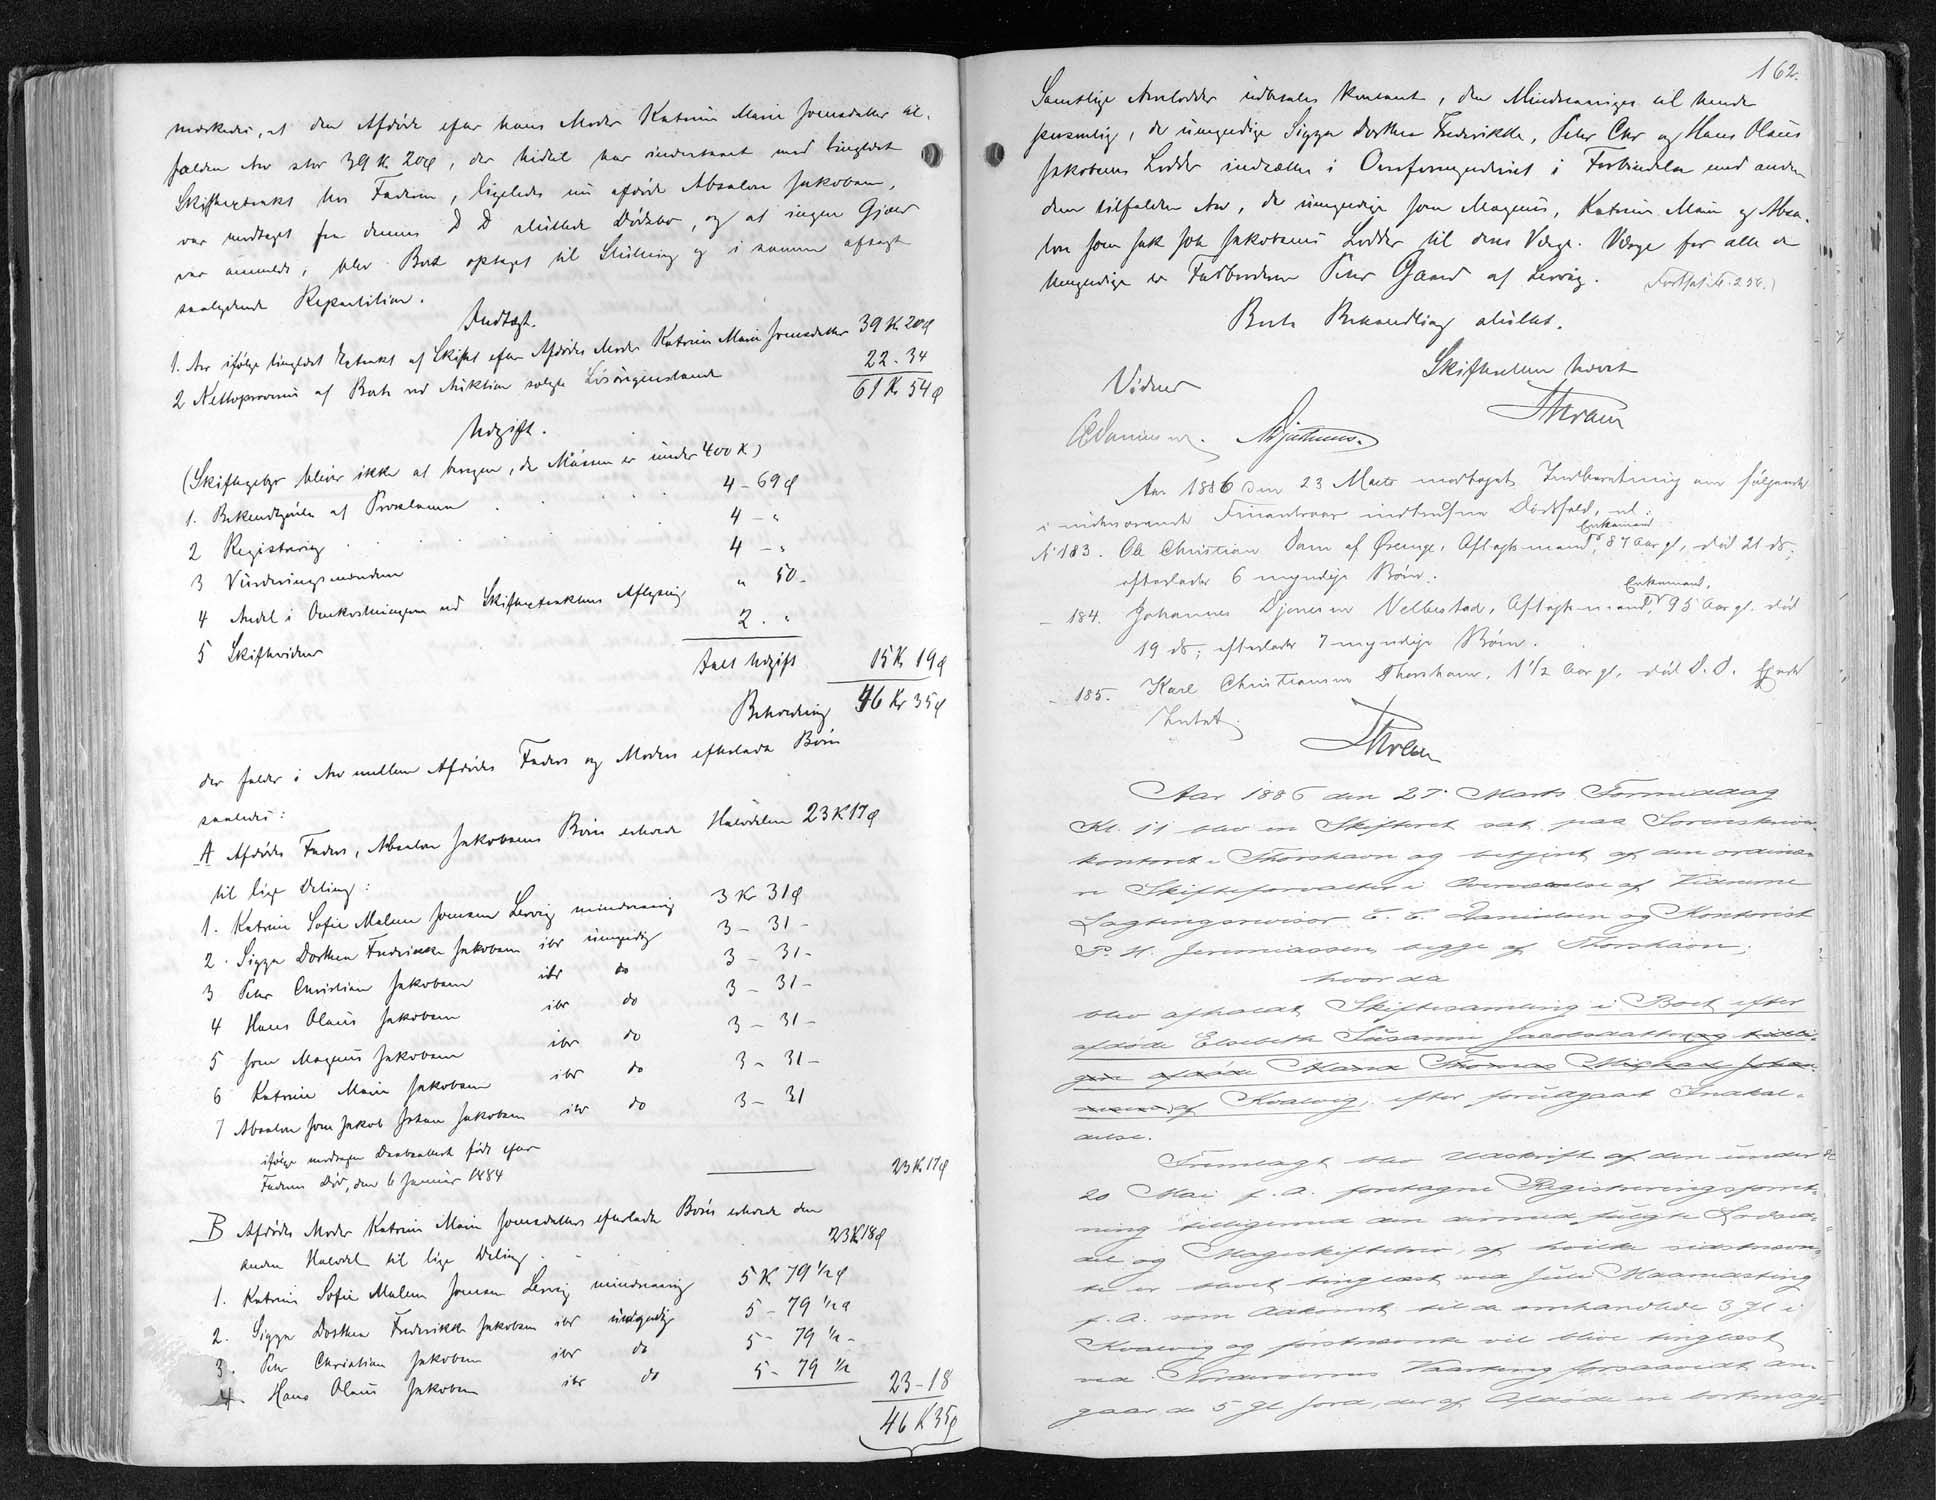 mærkedes, at den Afdøde efter hans Moder Katrine Marie Joensdatter til-
falden Arv stor 39 K 20 Ø, der hidtil har indestaaet med tinglæst
Skifteextrakt hos Faderen, ligeledes nu afdøde Absalon Jakobsen,
var modtaget fra dennes D D sluttede Dødsbo, og at ingen Gjæld
var anmeldt, blev Boet optaget til Slutning og i samme aflagt
saalydende Repartition.
Indtægt.
1. Arv ifølge tinglæst Extrakt af Skiftet efter Afdødes Moder Katrine Marie Joensdatter 39 K 20 Ø
2 Nettoprovenu af Boets ved Auktion solgte Løsøregenstande 22 - 34
61 K 54 Ø
Udgift.
(Skiftegebyr bliver ikke at beregne, da Massen er under 400 K)
1. Bekendtgørelse af Proklama 4 - 69 Ø
2 Registrering 4 - "
3 Vurderingsmændene 4 - "
4 Andel i Omkostningerne ved Skifteextraktens Aflysning " 50 -
5 Skiftevidner 2 . "
Ialt Udgift 15 Kr 19 Ø
Beholdning 46 Kr 35 Ø
der falder i Arv mellem Afdødes Faders og Moders efterladte Børn
saaledes:
A Afdødes Faders, Absalon Jakobsens Børn erholde Halvdelen 23 K 17 Ø
til lige Deling:
1. Katrine Sofie Malene Joensen Lervig mindreaarig 3 Kr 31 Ø
2. Sigga Dorthea Fredrikke Jakobsen ibr umyndig 3 - 31 -
3 Peter Christian Jakobsen ibr do 3 - 31 -
4 Hans Olaus Jakobsen ibr do 3 - 31 -
5 Joen Magnus Jakobsen ibr do 3 - 31 -
6 Katrine Marie Jakobsen ibr do 3 - 31 -
7 Absalon Joen Jakob Johan Jakobsen ibr do 3 - 31
ifølge modtagen Daabsattest født efter
Faderens Død, den 6 Januar 1884
23 K 17 Ø
B Afdødes Moder Katrine Marie Joensdatters efterladte Børn erholde den
anden Halvdel til lige Deling 23 K 18 Ø
1. Katrine Sofie Malene Joensen Lervig mindreaarig 5 K 79 1/2 Ø
2. Sigga Dorthea Fredrikke Jakobsen ibr umyndig 5 - 79 1/2 Ø
3. Peter Christian Jakobsen ibr do 5 - 79 1/2 -
4 Hans Olaus Jakobsen ibr do 5 - 79 1/2
23 - 18
46 K 35 Ø
162.
Samtlige Arvelodder udbetales kontant, den Mindreaariges til hende
personlig, de umyndige Sigga Dorthea Fredrikke, Peter Chr og Hans Olaus
Jakobsens Lodder indsættes i Overformynderiet i Forbindelse med anden
dem tilfalden Arv, de umyndige Joen Magnus, Katrine Marie og Absa-
lon Joen Jak Joh Jakobsens Lodder til deres Værge. Værge for alle de
Umyndige er Fadbroderen Peter Gaard af Lervig. (Fortsat f. 256.)
Boets Behandling sluttet.
Skifteretten hævet
Vidner
Aar 1886 den 23 Marts modtoges Indberetning om følgende
i indeværende Finantsaar indtrufne Dødsfald, nl:
Enkemand
N 183. Ole Christian Dam af Ørenge, Aftægtsmand, 87 Aar gl, død 21 ds;
efterlader 6 myndige Børn.
Enkemand,
- 184. Johannes Djonesen Velbestad, Aftægtsmand, 95 Aar gl. død
19 ds; efterlader 7 myndige Børn.
- 185. Karl Christiansen Thorshavn, 1 1/2 Aar gl, død D. D. Ejede
Intet.
Aar 1886 den 27. Marts Formiddag
Kl. 11 blev en Skifteret sat paa Sorenskriver-
kontoret i Thorshavn og betjent af den ordinæ-
re Skifteforvalter i Overværelse af Vidnerne
Lagtingsrevisor E. E. Danielsen og Kontorist
P. H. Jeremiassen, begge af Thorshavn;
hvorda
blev afholdt Skiftesamling i Boet efter
afdøde Elsebeth Susanne Jacobsdatter (og tidli-
gere afdøde Mand Thomas Michael Johan-
nesen) af Kvalvig, efter forudgaaet Indkal-
delse.
Fremlagt blev Udskrift af den under
20 Mai f. A. foretagne Registreringsforret-
ning tilligemed den dermed fulgte Lodsed-
del og Mageskiftebrev, af hvilke sidstnævn-
te er blevet tinglæst ved Juli Maanedsting
f. A. som Adkomst til de omhandlede 3 Gl i
Kvalvig og førstnævnte vil blive tinglæst
ved Norderøernes Vaarting forsaavidt an-
gaar de 5 Gl Jord, der af Afdøde ere bortmage-